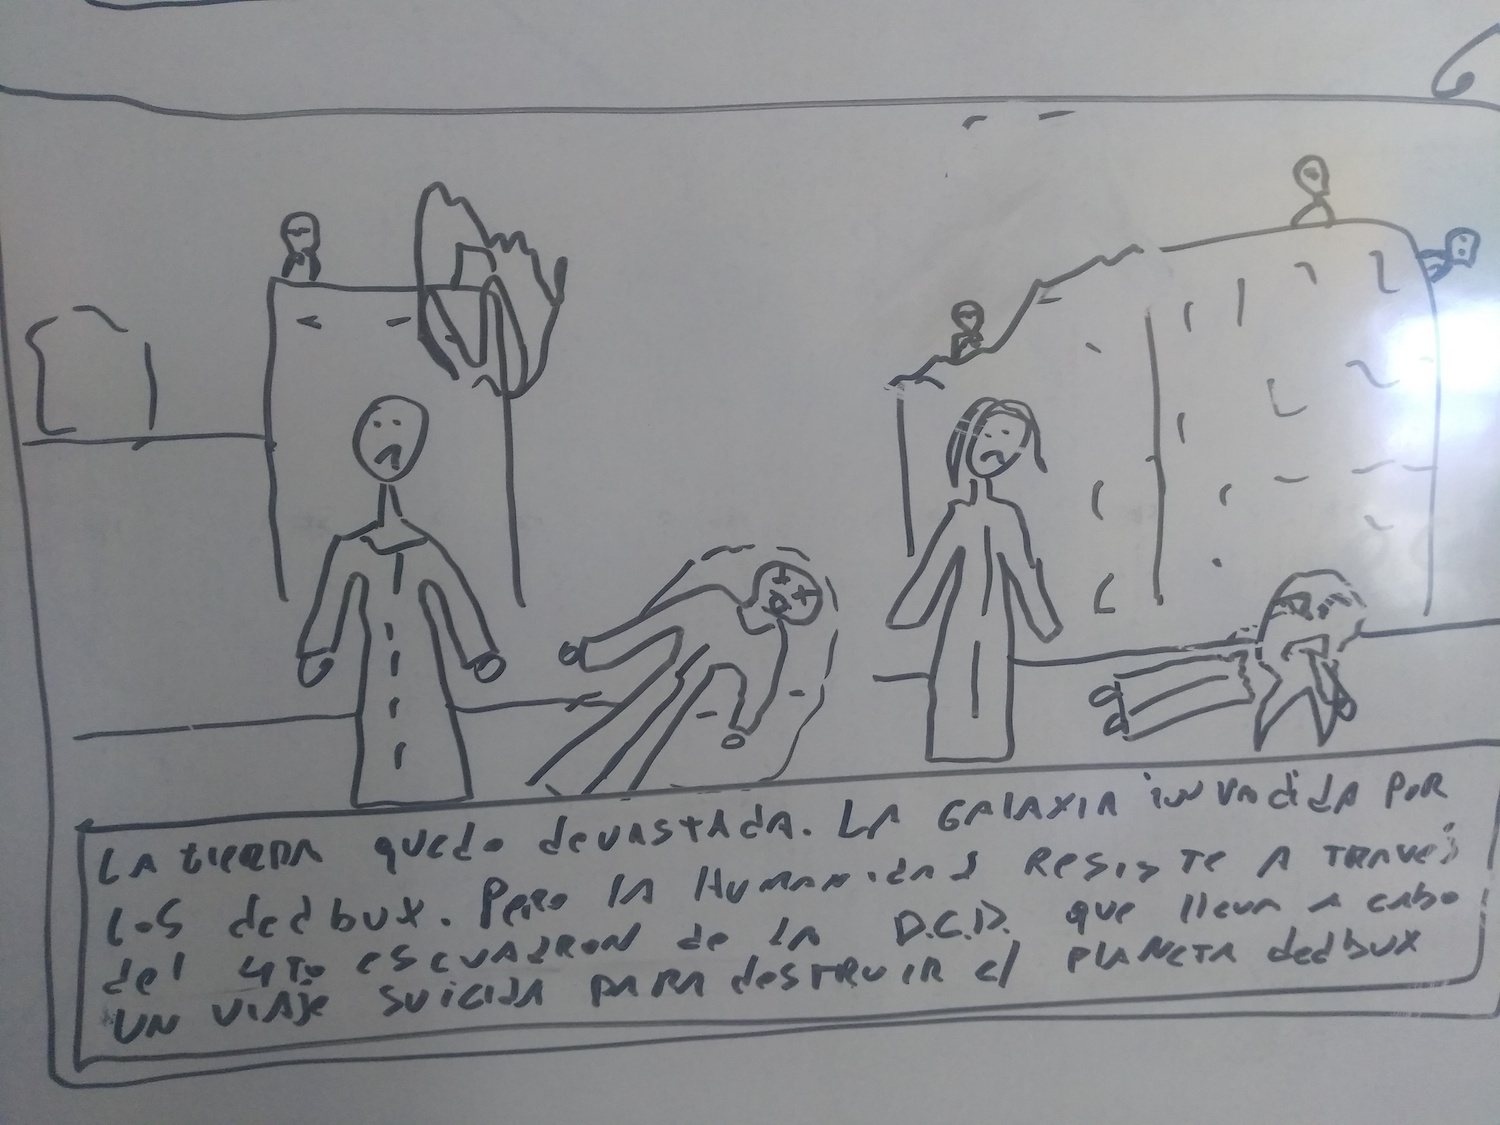 LA tierra quedo devastada. LA GALAXIA invadida por
los dedbux. Pero la Humanidad Resiste a traves
del 4to escuadron de la D.C.D. que lleva a cabo
un viaje suicida para destruir el planeta dedbux